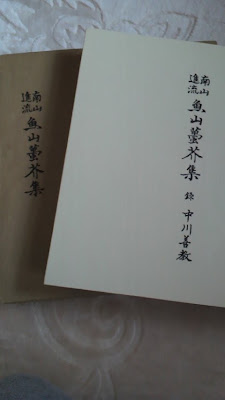 南山
進流
魚山蠆芥集 録 中川善教
南山
進流
魚山蠆芥集